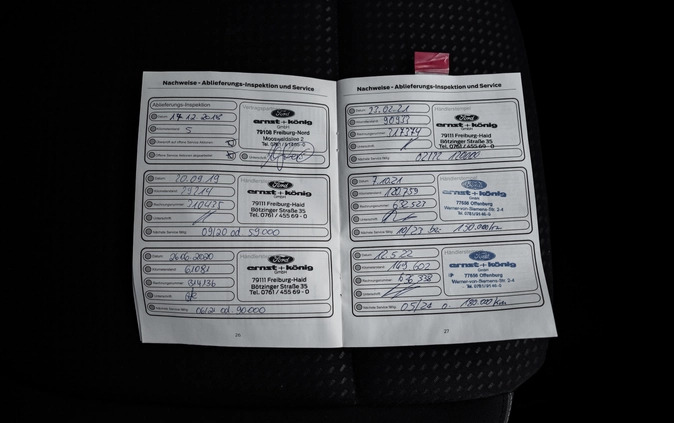 Nachweise - Ablieferungs-Inspektion und Service
Ablieferungs-Inspektion
Datum 17.12.2018
Kilometerstand 5
Ford
ernst+könig
GmbH
79108 Freiburg-Nord
Mooswaldallee 2
Datum 20.09.19
Kilometerstand 29214
Rechnungsnummer 210435
Unterschrift
Nächste Service fällig 09/20 od 59000
Ford
ernst+könig
GmbH
79111 Freiburg-Haid
Bötzinger Straße 35
Tel. 0761 / 455 69 - 0
Datum 26.06.2020
Kilometerstand 61082
Rechnungsnummer 314136
Unterschrift
Nächste Service fällig 06/21 od. 90.000
Ford
ernst+könig
GmbH
79111 Freiburg-Haid
Bötzinger Straße 35
Tel. 0761 / 455 69 - 0
26
Nachweise - Ablieferungs-Inspektion und Service
Datum 23.02.21
Kilometerstand 90933
Rechnungsnummer 217374
Nächste Service fällig 02/22 120000
Händlerstempel
Ford
ernst+könig
GmbH
79111 Freiburg-Haid
Bötzinger Straße 35
Tel. 0761 / 455 69 - 0
Datum 7.10.21
Kilometerstand 120.759
Rechnungsnummer 632.523
Unterschrift
Nächste Service fällig 10/23 bei 150.000 km
Ford
ernst+könig
GmbH
77656 Offenburg
Werner-von-Siemens-Str. 2-4
Datum 12.5.22
Kilometerstand 149.602
Rechnungsnummer 636.338
Unterschrift
Nächste Service fällig 05/24 o. 180.000 km
Ford
ernst+könig
GmbH
77656 Offenburg
Werner-von-Siemens-Str. 2-4
27